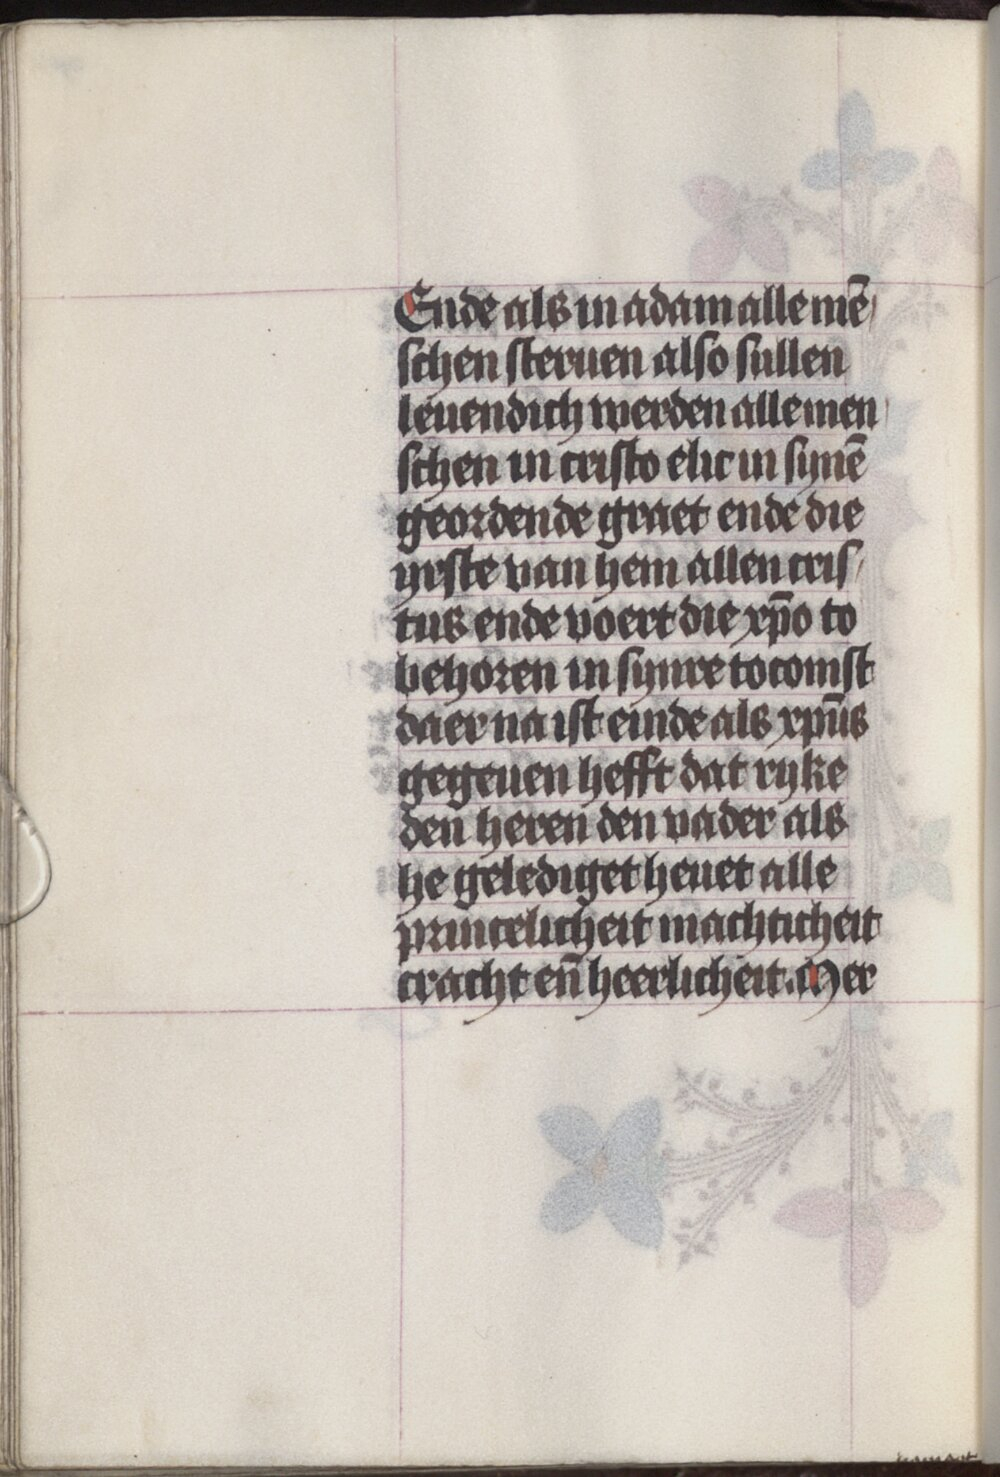 Ende als in adam alle mē
schen steruen also sullen
leuendich werden alle men
schen in cristo elic in synē
geordende graet ende die
yrste van hem allen cris
tus ende voert die xp̄o to
behoren in synre tocomst
daer na ist einde als xpūs
gegeuen hefft dat ryke
den heren den vader als
he gelediget heuet alle
princelicheit machticheit
cracht en̄ heerlicheit. Mer